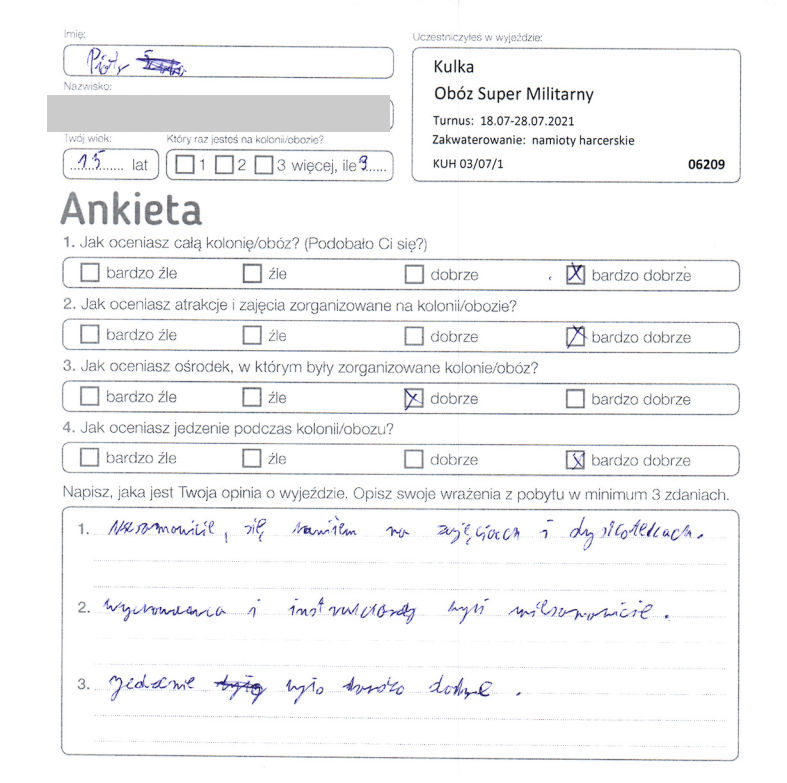 Imię:
Uczestniczyłeś w wyjeździe:
Piotr
Kulka
Obóz Super Militarny
Nazwisko:
Turnus: 18.07-28.07.2021
Zakwaterowanie: namioty harcerskie
KUH 03/07/1 06209
Twój wiek: Który raz jesteś na kolonii/obozie?
15 lat 1 2 3 więcej, ile 9
Ankieta
1. Jak oceniasz całą kolonię/obóz? (Podobało Ci się?)
bardzo źle źle dobrze X bardzo dobrze
2. Jak oceniasz atrakcje i zajęcia zorganizowane na kolonii/obozie?
bardzo źle źle dobrze X bardzo dobrze
3. Jak oceniasz ośrodek, w którym były zorganizowane kolonie/obóz?
bardzo źle źle X dobrze bardzo dobrze
4. Jak oceniasz jedzenie podczas kolonii/obozu?
bardzo źle źle dobrze X bardzo dobrze
Napisz, jaka jest Twoja opinia o wyjeździe. Opisz swoje wrażenia z pobytu w minimum 3 zdaniach.
1. , się na zajęciach i dyskotekach.
2. i byli .
3. było bardzo dobre .